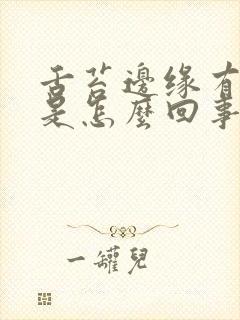 舌苔邊缘有
是怎麼回事
一罐兒